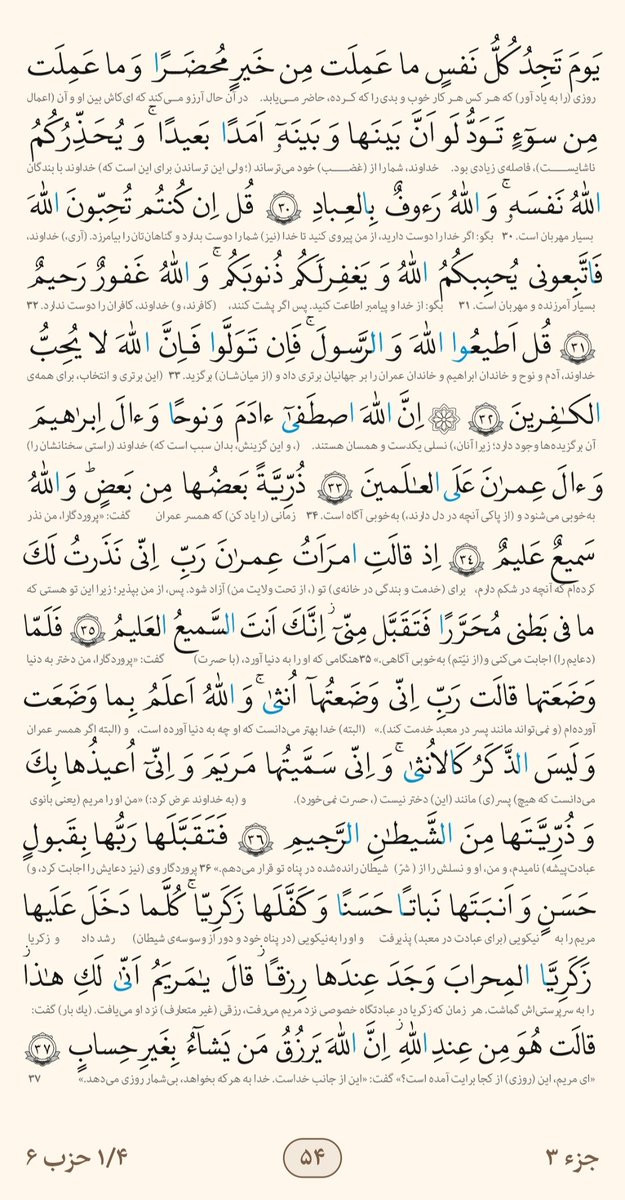 يَومَ تَجِدُ كُلُّ نَفسٍ ما عَمِلَت مِن خَيرٍ مُحضَرًا وَ ما عَمِلَت
روزی (را به یاد آور) که هر کس هر کار خوب و بدی را که کرده، حاضر می‌یابد. در آن حال آرزو می‌کند که ای‌کاش بین او و آن (اعمال
مِن سوٓءٍ تَوَدُّ لَو اَنَّ بَينَها وَ بَينَهٓ اَمَدًا بَعيدًا ۚ وَ يُحَذِّرُكُمُ
ناشایست)، فاصله‌ی زیادی بود. خداوند، شما را از (غضب) خود می‌ترساند (؛ ولی این ترساندن برای این است که) خداوند با بندگان
اللهُ نَفسَهٗ ۚ وَ اللهُ رَءوفٌ بِالعِبادِ ﴿٣٠﴾ قُل اِن كُنتُم تُحِبّونَ اللهَ
بسیار مهربان است. ۳۰ بگو: اگر خدا را دوست دارید، از من پیروی کنید تا خدا (نیز) شما را دوست بدارد و گناهان‌تان را بیامرزد. (آری،) خداوند،
فَاتَّبِعونى يُحبِبكُمُ اللهُ وَ يَغفِر لَكُم ذُنوبَكُم ۚ وَ اللهُ غَفورٌ رَحيمٌ
بسیار آمرزنده و مهربان است. ۳۱ بگو: از خدا و پیامبر اطاعت کنید. پس اگر پشت کنند، (کافرند، و) خداوند، کافران را دوست ندارد. ۳۲
﴿٣١﴾ قُل اَطيعُوا اللهَ وَ الرَّسولَ ۚ فَاِن تَوَلَّوا فَاِنَّ اللهَ لا يُحِبُّ
خداوند، آدم و نوح و خاندان ابراهیم و خاندان عمران را بر جهانیان برتری داد و (از میان‌شان) برگزید. ۳۳ (این برتری و انتخاب، برای همه‌ی
الكٰفِرينَ ﴿٣٢﴾ ۞ اِنَّ اللهَ اصطَفىٰٓ ءادَمَ وَ نوحًا وَ ءالَ اِبرٰهيمَ
آن برگزیده‌ها وجود دارد؛ زیرا آنان،) نسلی یکدست و همسان هستند. (، و این گزینش، بدان سبب است که) خداوند (راستی سخنانشان را)
وَ ءالَ عِمرٰنَ عَلَى العٰلَمينَ ﴿٣٣﴾ ذُرِّيَّةً بَعضُها مِن بَعضٍ ۗ وَ اللهُ
به‌خوبی می‌شنود و (از پاکی آنچه در دل دارند،) به‌خوبی آگاه است. ۳۴ زمانی (را یاد کن) که همسر عمران گفت: «پروردگارا، من نذر
سَميعٌ عَليمٌ ﴿٣٤﴾ اِذ قالَتِ امرَاَتُ عِمرٰنَ رَبِّ اِنّى نَذَرتُ لَكَ
کرده‌ام که آنچه در شکم دارم، برای (خدمت و بندگی در خانه‌ی) تو (، از تحت ولایت من) آزاد شود. پس، از من بپذیر؛ زیرا این تو هستی که
ما فى بَطنى مُحَرَّرًا فَتَقَبَّل مِنّىٓ ۖ اِنَّكَ اَنتَ السَّميعُ العَليمُ ﴿٣٥﴾ فَلَمّا
(دعایم را) اجابت می‌کنی و (از نیّتم) به‌خوبی آگاهی.» ۳۵ هنگامی که او را به دنیا آورد، (با حسرت) گفت: «پروردگارا، من دختر به دنیا
وَضَعَتها قالَت رَبِّ اِنّى وَضَعتُهآ اُنثىٰ ۚ وَ اللهُ اَعلَمُ بِما وَضَعَت
آورده‌ام (و نمی‌تواند مانند پسر در معبد خدمت کند).» (البته) خدا بهتر می‌دانست که او چه به دنیا آورده است، و (البته اگر همسر عمران
وَ لَيسَ الذَّكَرُ كَالاُنثىٰ ۚ وَ اِنّى سَمَّيتُها مَريَمَ وَ اِنّىٓ اُعيذُها بِكَ
می‌دانست که هیچ) پسر(ی) مانند (این) دختر نیست (، حسرت نمی‌خورد). و (به خداوند عرض کرد:) «من او را مریم (یعنی بانوی
وَ ذُرِّيَّتَها مِنَ الشَّيطٰنِ الرَّجيمِ ﴿٣٦﴾ فَتَقَبَّلَها رَبُّها بِقَبولٍ
عبادت‌پیشه) نامیدم، و من، او و نسلش را از (شرّ) شیطان رانده‌شده در پناه تو قرار می‌دهم.» ۳۶ پروردگار وی (نیز دعایش را اجابت کرد، و)
حَسَنٍ وَ اَنبَتَها نَباتًا حَسَنًا وَ كَفَّلَها زَكَرِيّا ۖ كُلَّما دَخَلَ عَلَيها
مریم را به نیکویی (برای عبادت در معبد) پذیرفت و او را به نیکویی (در پناه خود و دور از وسوسه‌ی شیطان) رشد داد و زکریا
زَكَرِيَّا المِحرابَ وَجَدَ عِندَها رِزقًا ۖ قالَ يٰمَريَمُ اَنّىٰ لَكِ هٰذا ۖ
را به سرپرستی‌اش گماشت. هر زمان که زکریا در عبادتگاه خصوصی نزد مریم می‌رفت، رزقی (غیر متعارف) نزد او می‌یافت. (یک بار) گفت:
قالَت هُوَ مِن عِندِ اللهِ ۖ اِنَّ اللهَ يَرزُقُ مَن يَشآءُ بِغَيرِ حِسابٍ ﴿٣٧﴾
«ای مریم، این (روزی) از کجا برایت آمده است؟» گفت: «این از جانب خداست. خدا به هر که بخواهد، بی‌شمار روزی می‌دهد.» ۳۷
جزء ۳ ۵۴ ۱/۴ حزب ۶